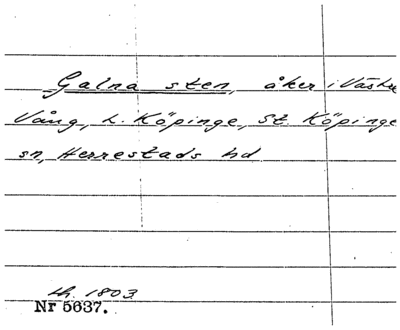 Galna sten, åker i Västra
Vång, L. Köpinge, St. Köpinge
sn, Herrestads hd
th. 1803
Nr 5637.